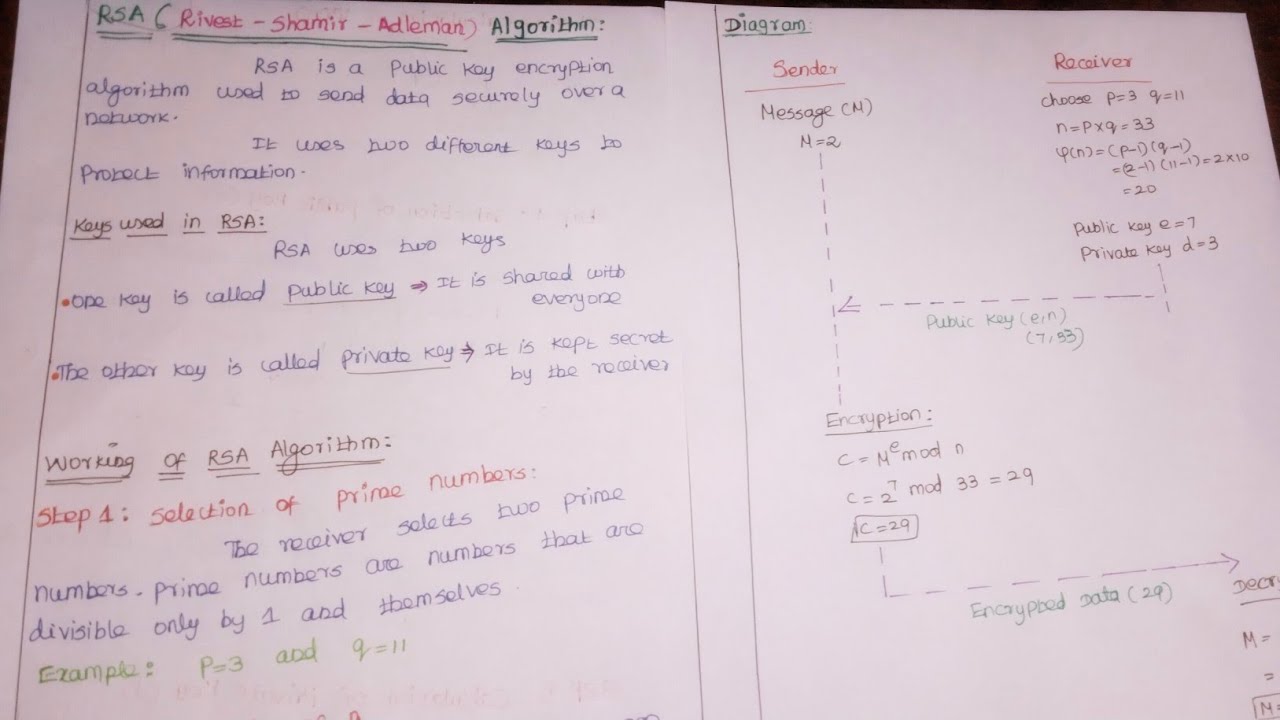 RSA ( Rivest - Shamir - Adleman) Algorithm:
RSA is a Public key encryption
algorithm used to send data securely over a
network.
It uses two different keys to
Protect information.
Keys used in RSA:
RSA uses two keys
• One key is called Public key ⇒ It is shared with
everyone
• The other key is called Private key ⇒ It is kept secret
by the receiver
Working of RSA Algorithm:
Step 1: Selection of prime numbers:
The receiver selects two prime
numbers. Prime numbers are numbers that are
divisible only by 1 and themselves.
Example: P=3 and q=11
Diagram:
Sender
Message (M)
M=2
Receiver
choose P=3 q=11
n=P×q=33
φ(n)=(P-1)(q-1)
=(2-1)(11-1)=2×10
=20
Public key e=7
Private key d=3
Public key (e,n)
(7,33)
Encryption:
C=M^e mod n
C=2^7 mod 33=29
C=29
Encrypted Data (29)
Decr
M=
=
M=